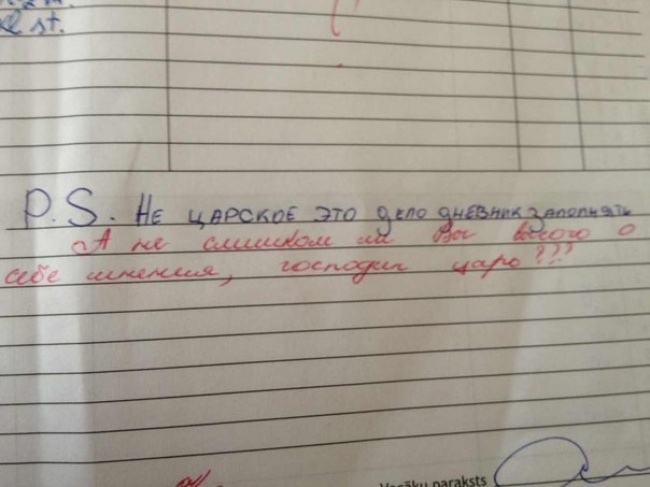 st.
P.S. НЕ ЦАРСКОЕ ЭТО ДЕЛО ДНЕВНИК ЗАПОЛНЯТЬ
А не слишком ли Вы много о
себе мнения, господин царь???
Vecāku paraksts